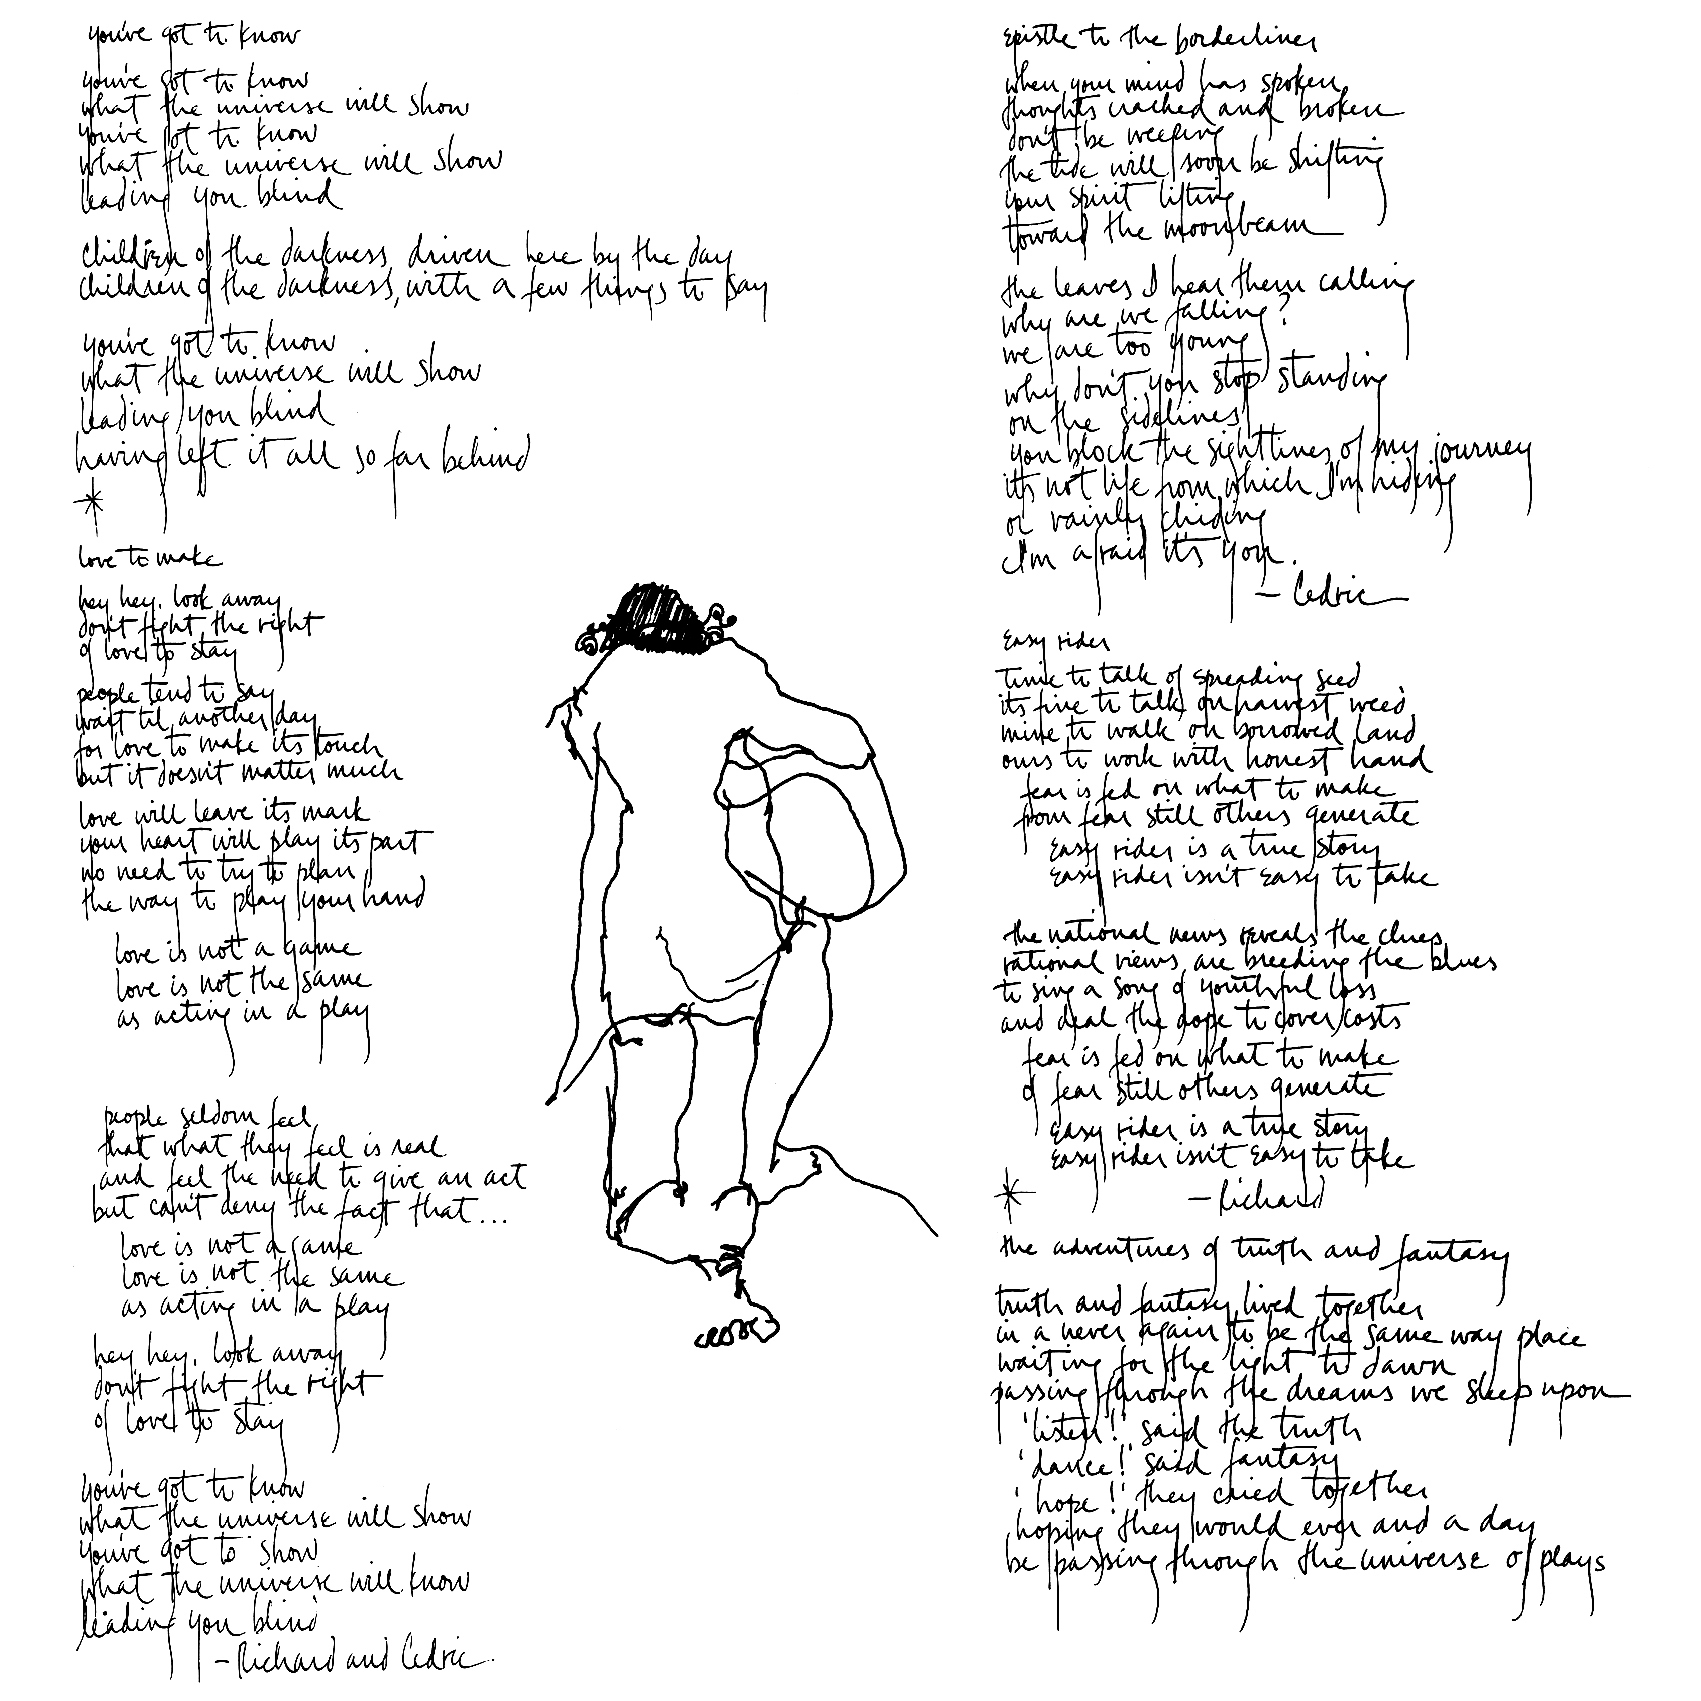 you've got to know
you've got to know
what the universe will show
you've got to know
what the universe will show
leading you blind
children of the darkness, driven here by the day
children of the darkness, with a few things to say
you've got to know
what the universe will show
leading you blind
having left it all so far behind
*
love to make
hey hey, look away
don't fight the right
of love to stay
people tend to say
wait til another day
for love to make its touch
but it doesn't matter much
love will leave its mark
your heart will play its part
no need to try to plan
the way to play your hand
love is not a game
love is not the same
as acting in a play
people seldom feel
that what they feel is real
and feel the need to give an act
but can't deny the fact that...
love is not a game
love is not the same
as acting in a play
hey hey, look away
don't fight the right
of love to stay
you've got to know
what the universe will show
you've got to show
what the universe will know
leading you blind
- Richard and Cedric.
epistle to the borderliner
when your mind has spoken
thoughts cracked and broken
don't be weeping
the tide will soon be shifting
your spirit lifting
toward the moonbeam
the leaves I hear them calling
why are we falling?
we are too young
why don't you stop standing
on the sidelines
you block the sightlines of my journey
it's not life from which I'm hiding
or vainly chiding
I'm afraid it's you.
- Cedric
easy rider
time to talk of spreading seed
its fine to talk on harvest weed
mine to walk on borrowed land
ours to work with honest hand
fear is fed on what to make
from fear still others generate
easy rider is a true story
easy rider isn't easy to take
the national news reveals the clues
rational views are breeding the blues
to sing a song of youthful loss
and deal the dope to cover costs
fear is fed on what to make
of fear still others generate
easy rider is a true story
easy rider isn't easy to take
*
- Richard
the adventures of truth and fantasy
truth and fantasy lived together
in a never again to be the same way place
waiting for the light to dawn
passing through the dreams we sleep upon
'listen!' said the truth
'dance!' said fantasy
'hope!' they cried together
hoping they would ever and a day
be passing through the universe of plays